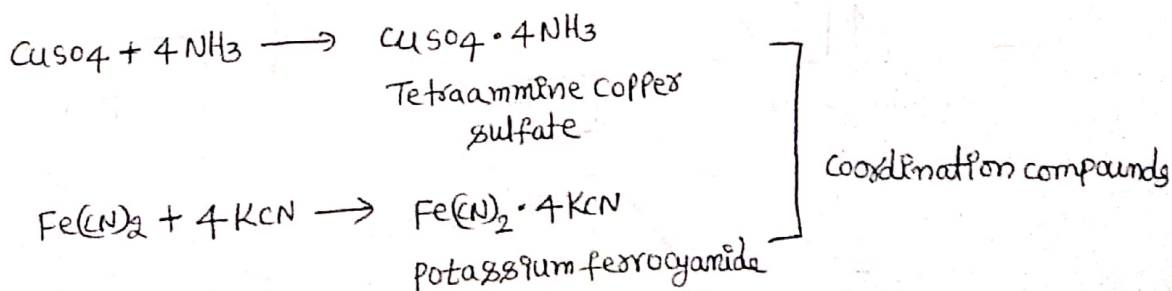 CuSO4 + 4NH3 ⟶ CuSO4 · 4NH3
Tetraammine Copper
sulfate
Coordination compounds
Fe(CN)2 + 4KCN ⟶ Fe(CN)2 · 4KCN
potassium ferrocyanide